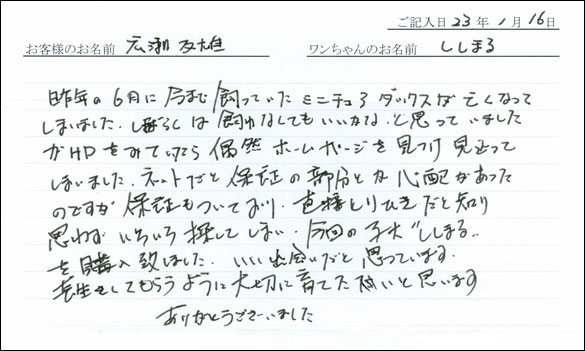 ご記入日 23年 1月 16日
お客様のお名前 広瀬 友雄 ワンちゃんのお名前 ししまる
昨年の6月に今まで飼っていたミニチュアダックスが亡くなって
しまいました。しばらくは飼わなくてもいいかな、と思っていました
がHPをみていたら偶然ホームページを見つけ見入って
しまいました。ネットだと保証の部分とか心配があった
のですが保証もついており、直接とりひきだと知り
思わずいろいろ探してしまい、今回の子犬"ししまる"
を購入致しました。いい出会いだと思っています。
長生きしてもらうように大切に育てたいと思います
ありがとうございました